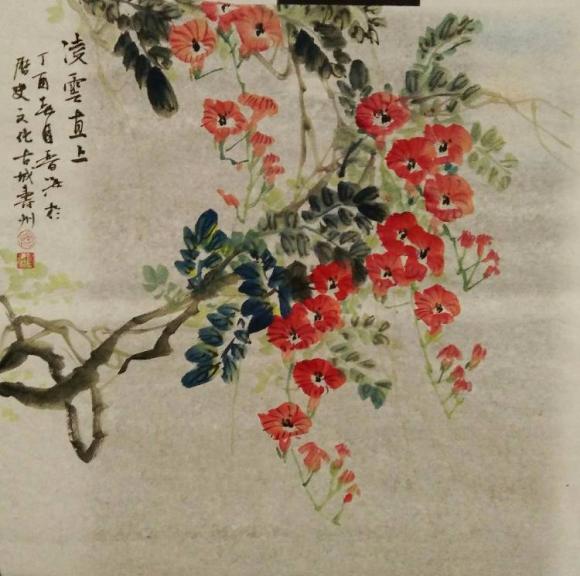 凌雲直上
丁酉春月晋洪於
歷史文化古城壽州